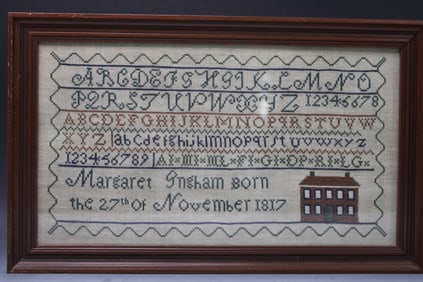 ABCDEFGHIJKLMNO
PQRSTUVWXYZ 12345678
ABCDEFGHIJKLMNOPQRSTUVW
XYZ abcdefghijklmnopqrstuvwxyz
123456789 AI·MI·ML·FI·GI·DP·RI·LG
Margaret Ingham Born
the 27th of November 1817